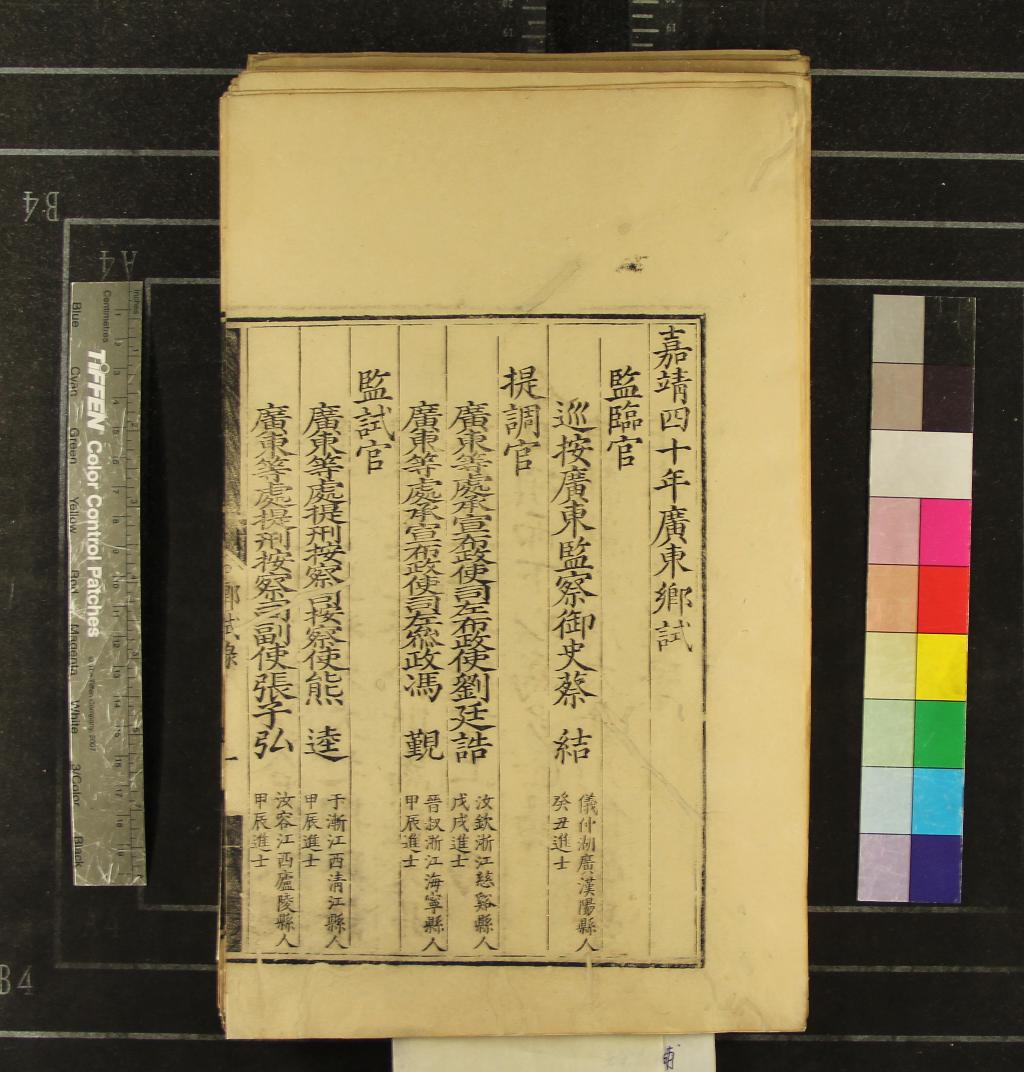 嘉靖四十年廣東鄉試
監臨官
巡按廣東監察御史蔡 結
儀仲湖廣漢陽縣人
癸丑進士
提調官
廣東等處承宣布政使司左布政使劉廷誥
汝欽浙江慈谿縣人
戊戌進士
廣東等處承宣布政使司左叅政馮 覲
晉叔浙江海寧縣人
甲辰進士
監試官
廣東等處提刑按察司按察使熊 逵
于漸江西清江縣人
甲辰進士
廣東等處提刑按察司副使張子弘
汝容江西廬陵縣人
甲辰進士
鄉試錄
一
B4
A4
B4
Inches
Centimetres
TIFFEN Color Control Patches
© The Tiffen Company, 2007
Blue
Cyan
Green
Yellow
Red
Magenta
White
3/Color
Black